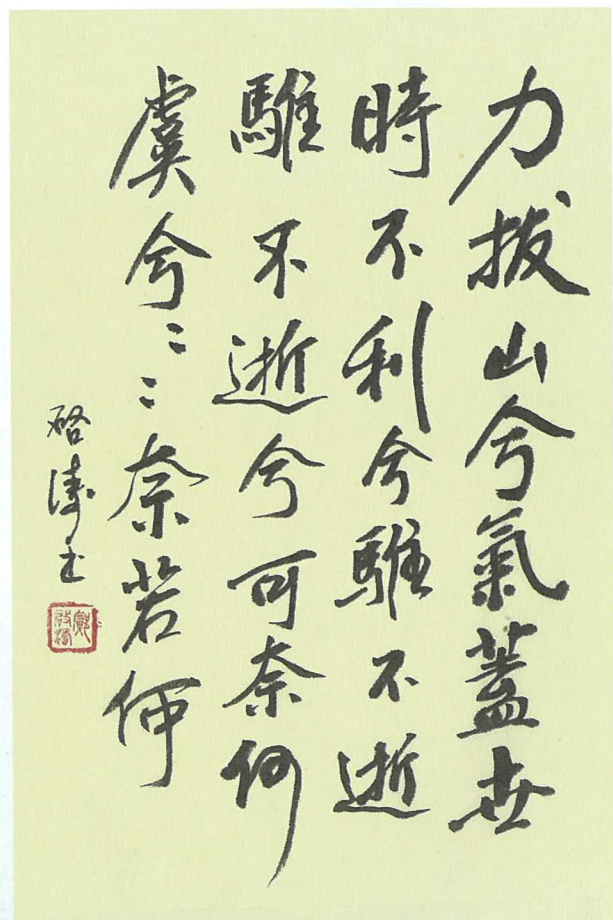 力拔山兮氣蓋世
時不利兮騅不逝
騅不逝兮可奈何
虞兮〻〻奈若何
啓濤書